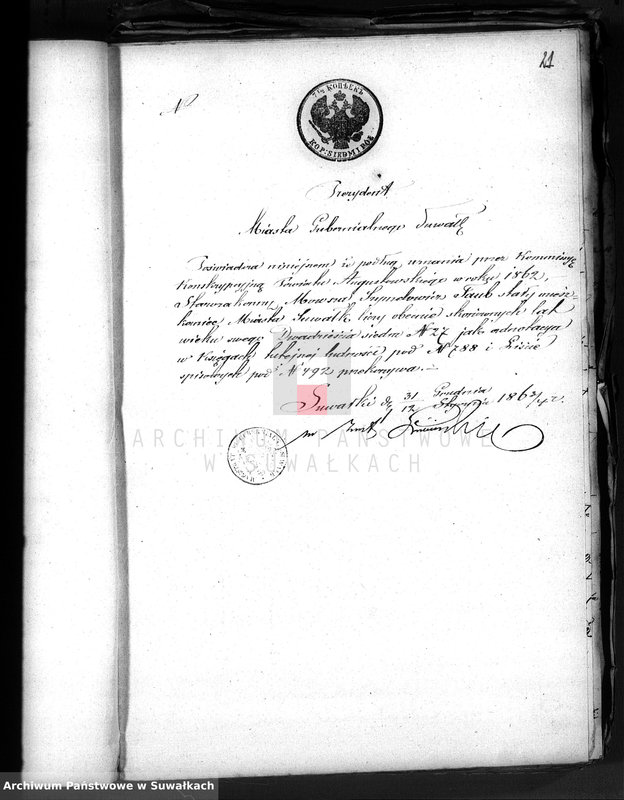 21
№
7½ КОПѢЕКЪ
KOP: SIEDM I PÓŁ
Prezydent
Miasta Gubernialnego Suwałk
Poświadcza niniejszem iż podług uznania przez Kommissyę
Konskrypcyjną Powiatu Augustowskiego w roku 1862,
Starozakonny Mowsza Taub stały miesz-
kaniec Miasta Suwałk liczy obecnie skończonych lat
wieku swego Dwadzieścia siedm № 27 jak adnotacya
w Księgach tutejszej ludności pod № 788 i Liście
spisowych pod № 492 przekonywa.
Suwałki d. 31 Grudnia 1863/4 r.
12 Stycznia
ARCHIWUM PAŃSTWOWE
W SUWAŁKACH
Archiwum Państwowe w Suwałkach